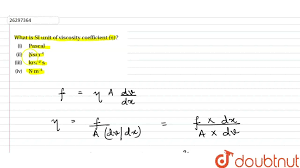 26297364
What is SI unit of viscosity coefficient (η)?
(i) Pascal
(ii)
(iii)
(iv)
f = η A dv/dx
η = f / A (dv/dx) = f × dx / A × dv
doubtnut